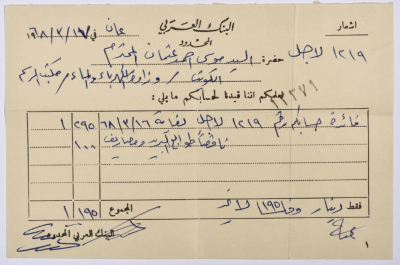 اشعار
البنك العربي
المحدود
عمان في ١٧/٣/١٩٦٨
١٢١٩ لاجل حضرة السيد موسى احمد عثمان المحترم
الكويت / وزارة الكهرباء والماء / مكتب الرسم
نعلمكم اننا قيدنا لحسابكم ما يلي :
١٢٣٧١
فائدة حسابكم رقم ١٢١٩ لاجل لغاية ٦٨/٣/١٦ ٢٩٥ ١
ناقصاً طوابع البريد ومصاريف ١٠٠
فقط دينار و فلس ١٩٥ لا غير المجموع ١٩٥ ١
البنك العربي المحدود
١